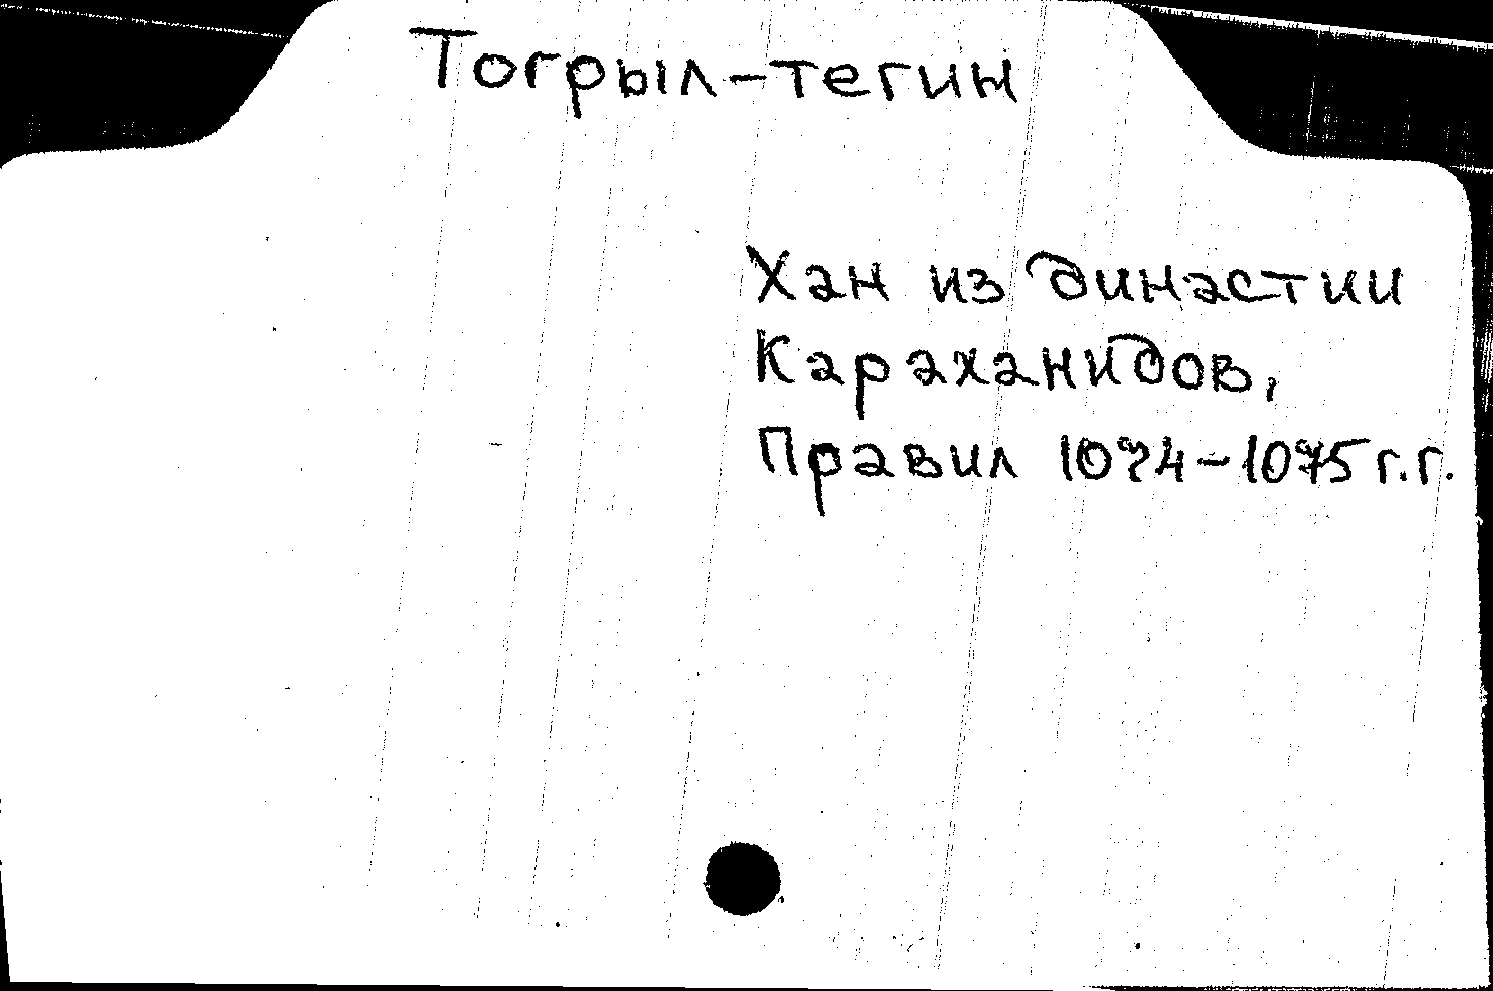 Тогрыл-тегин
Хан из династии
Караханидов,
Правил 1074-1075 г.г.